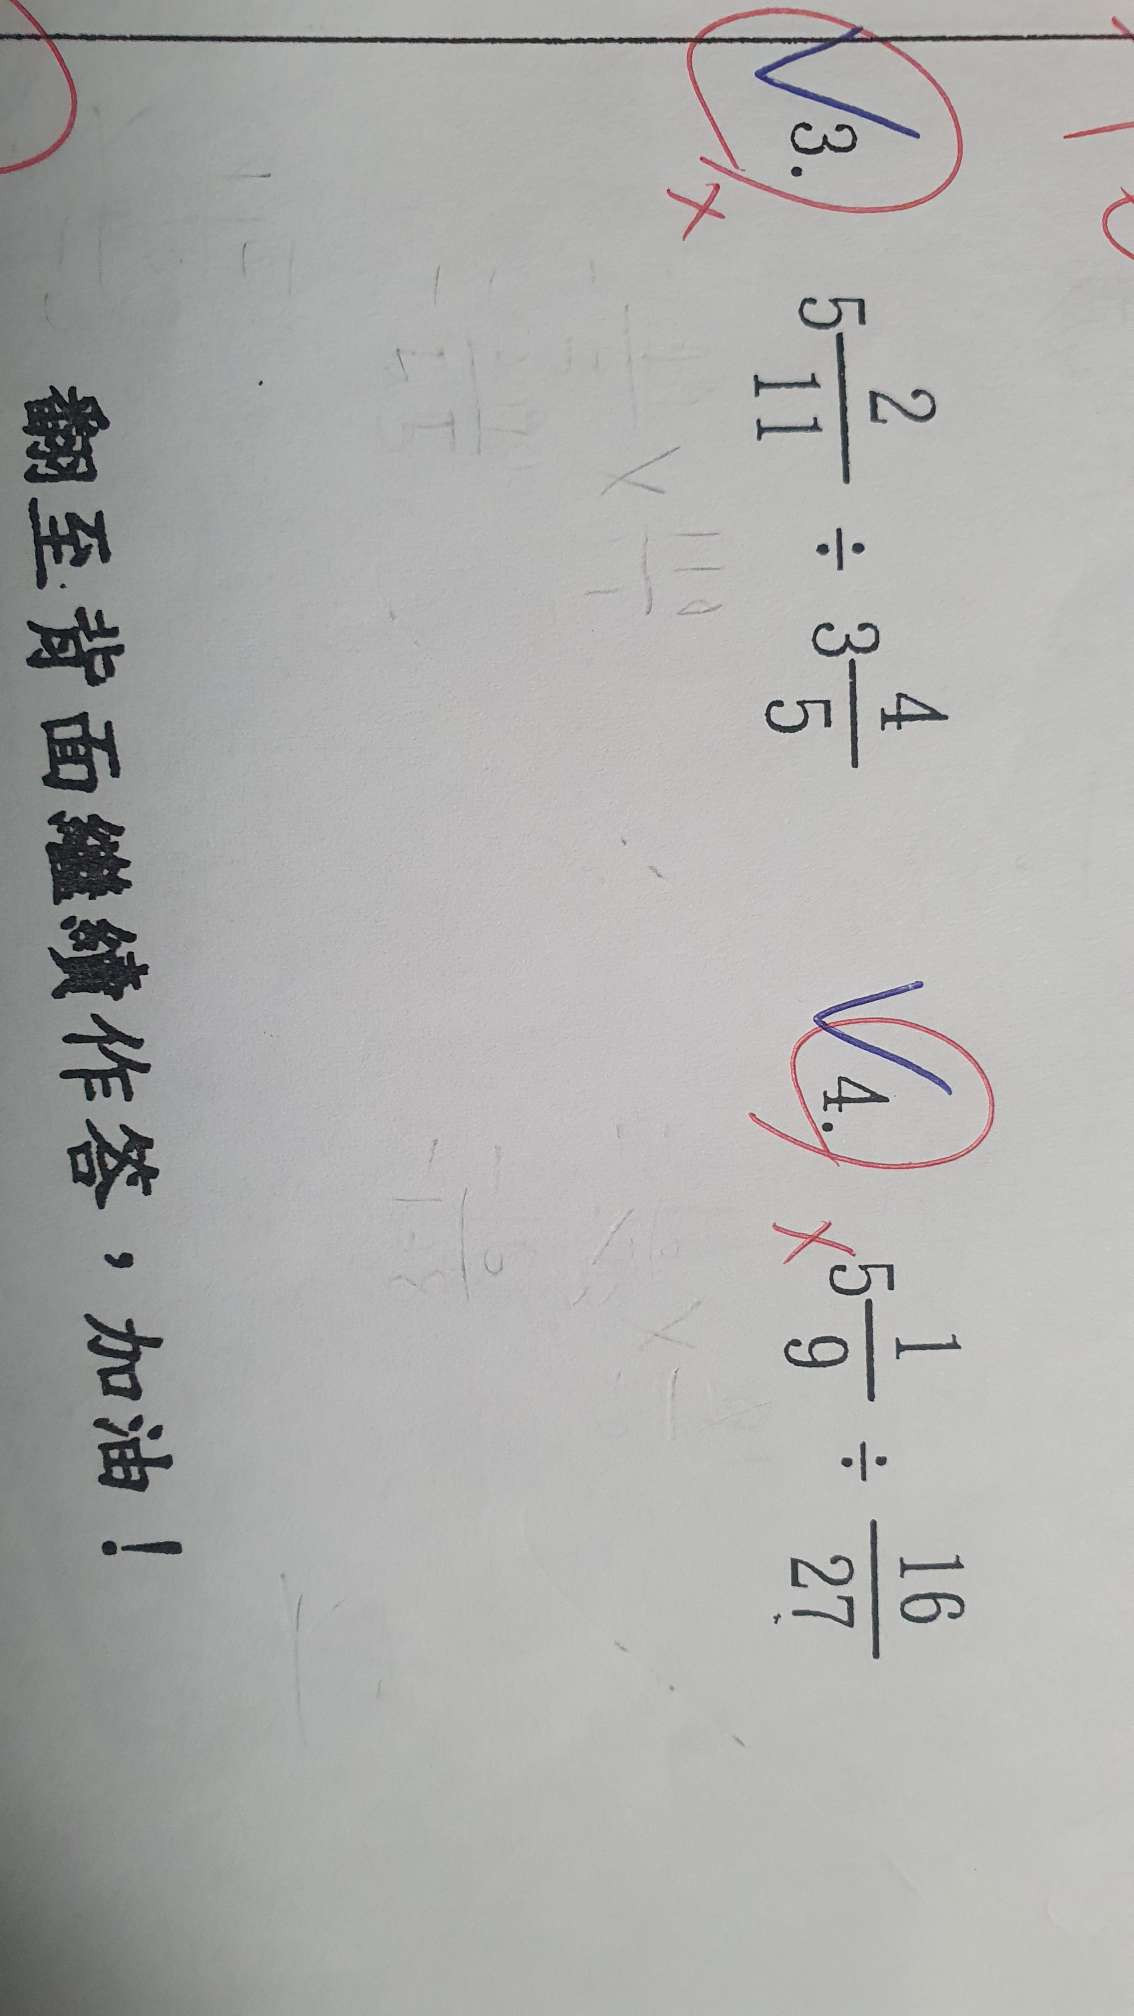 3. 5 2/11 ÷ 3 4/5
4. 5 1/9 ÷ 16/27
翻至背面繼續作答，加油！